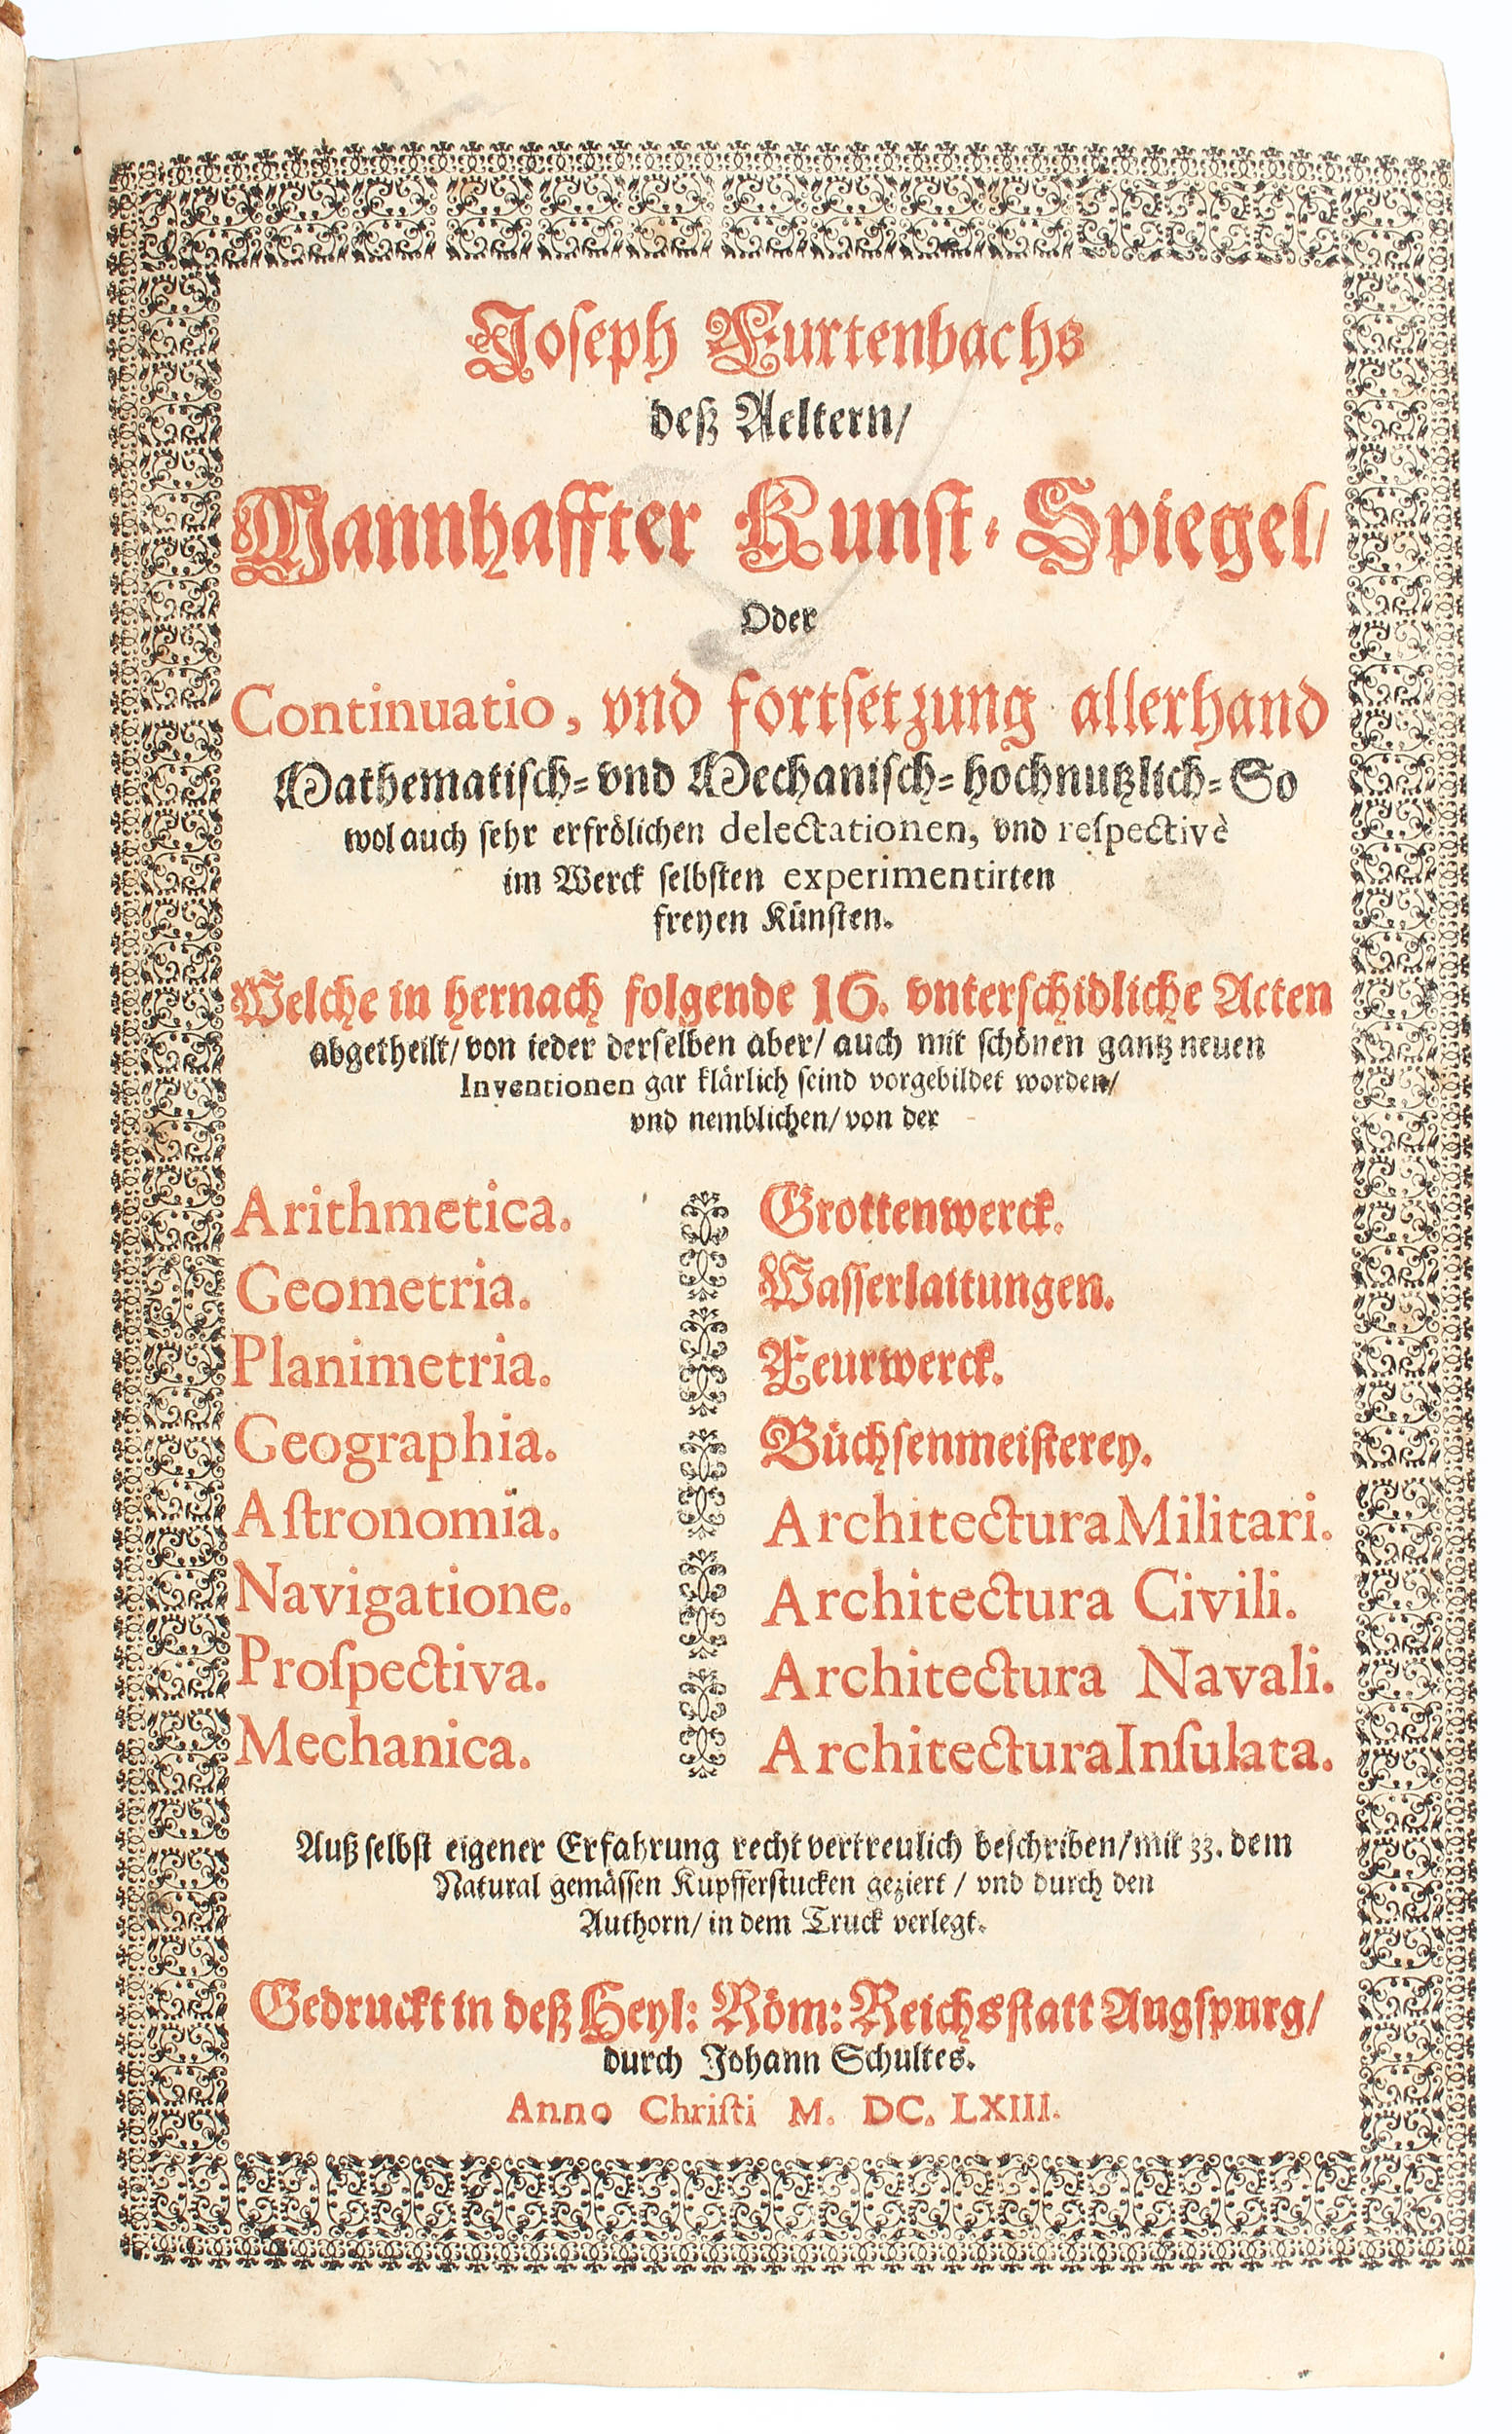 Joseph Furtenbachs
deß Aeltern/
Mannhaffter Kunst-Spiegel/
Oder
Continuatio, vnd fortsetzung allerhand
Mathematisch- vnd Mechanisch- hochnutzlich- So
wol auch sehr erfrölichen delectationen, vnd reſpectivè
im Werck selbsten experimentirten
freyen Künsten.
Welche in hernach folgende 16. vnterschidliche Acten
abgetheilt/ von ieder derselben aber/ auch mit schönen gantz neuen
Inventionen gar klärlich seind vorgebildet worden/
vnd nemblichen/ von der
Arithmetica.
Geometria.
Planimetria.
Geographia.
Aſtronomia.
Navigatione.
Proſpectiva.
Mechanica.
Grottenwerck.
Wasserlaitungen.
Feurwerck.
Büchsenmeisterey.
Architectura Militari.
Architectura Civili.
Architectura Navali.
Architectura Inſulata.
Auß selbst eigener Erfahrung recht vertreulich beschriben/ mit 33. dem
Natural gemässen Kupfferstucken geziert / vnd durch den
Authorn/ in dem Truck verlegt.
Gedruckt in deß Heyl: Röm: Reichsstatt Augspurg/
durch Johann Schultes.
Anno Chriſti M. DC. LXIII.